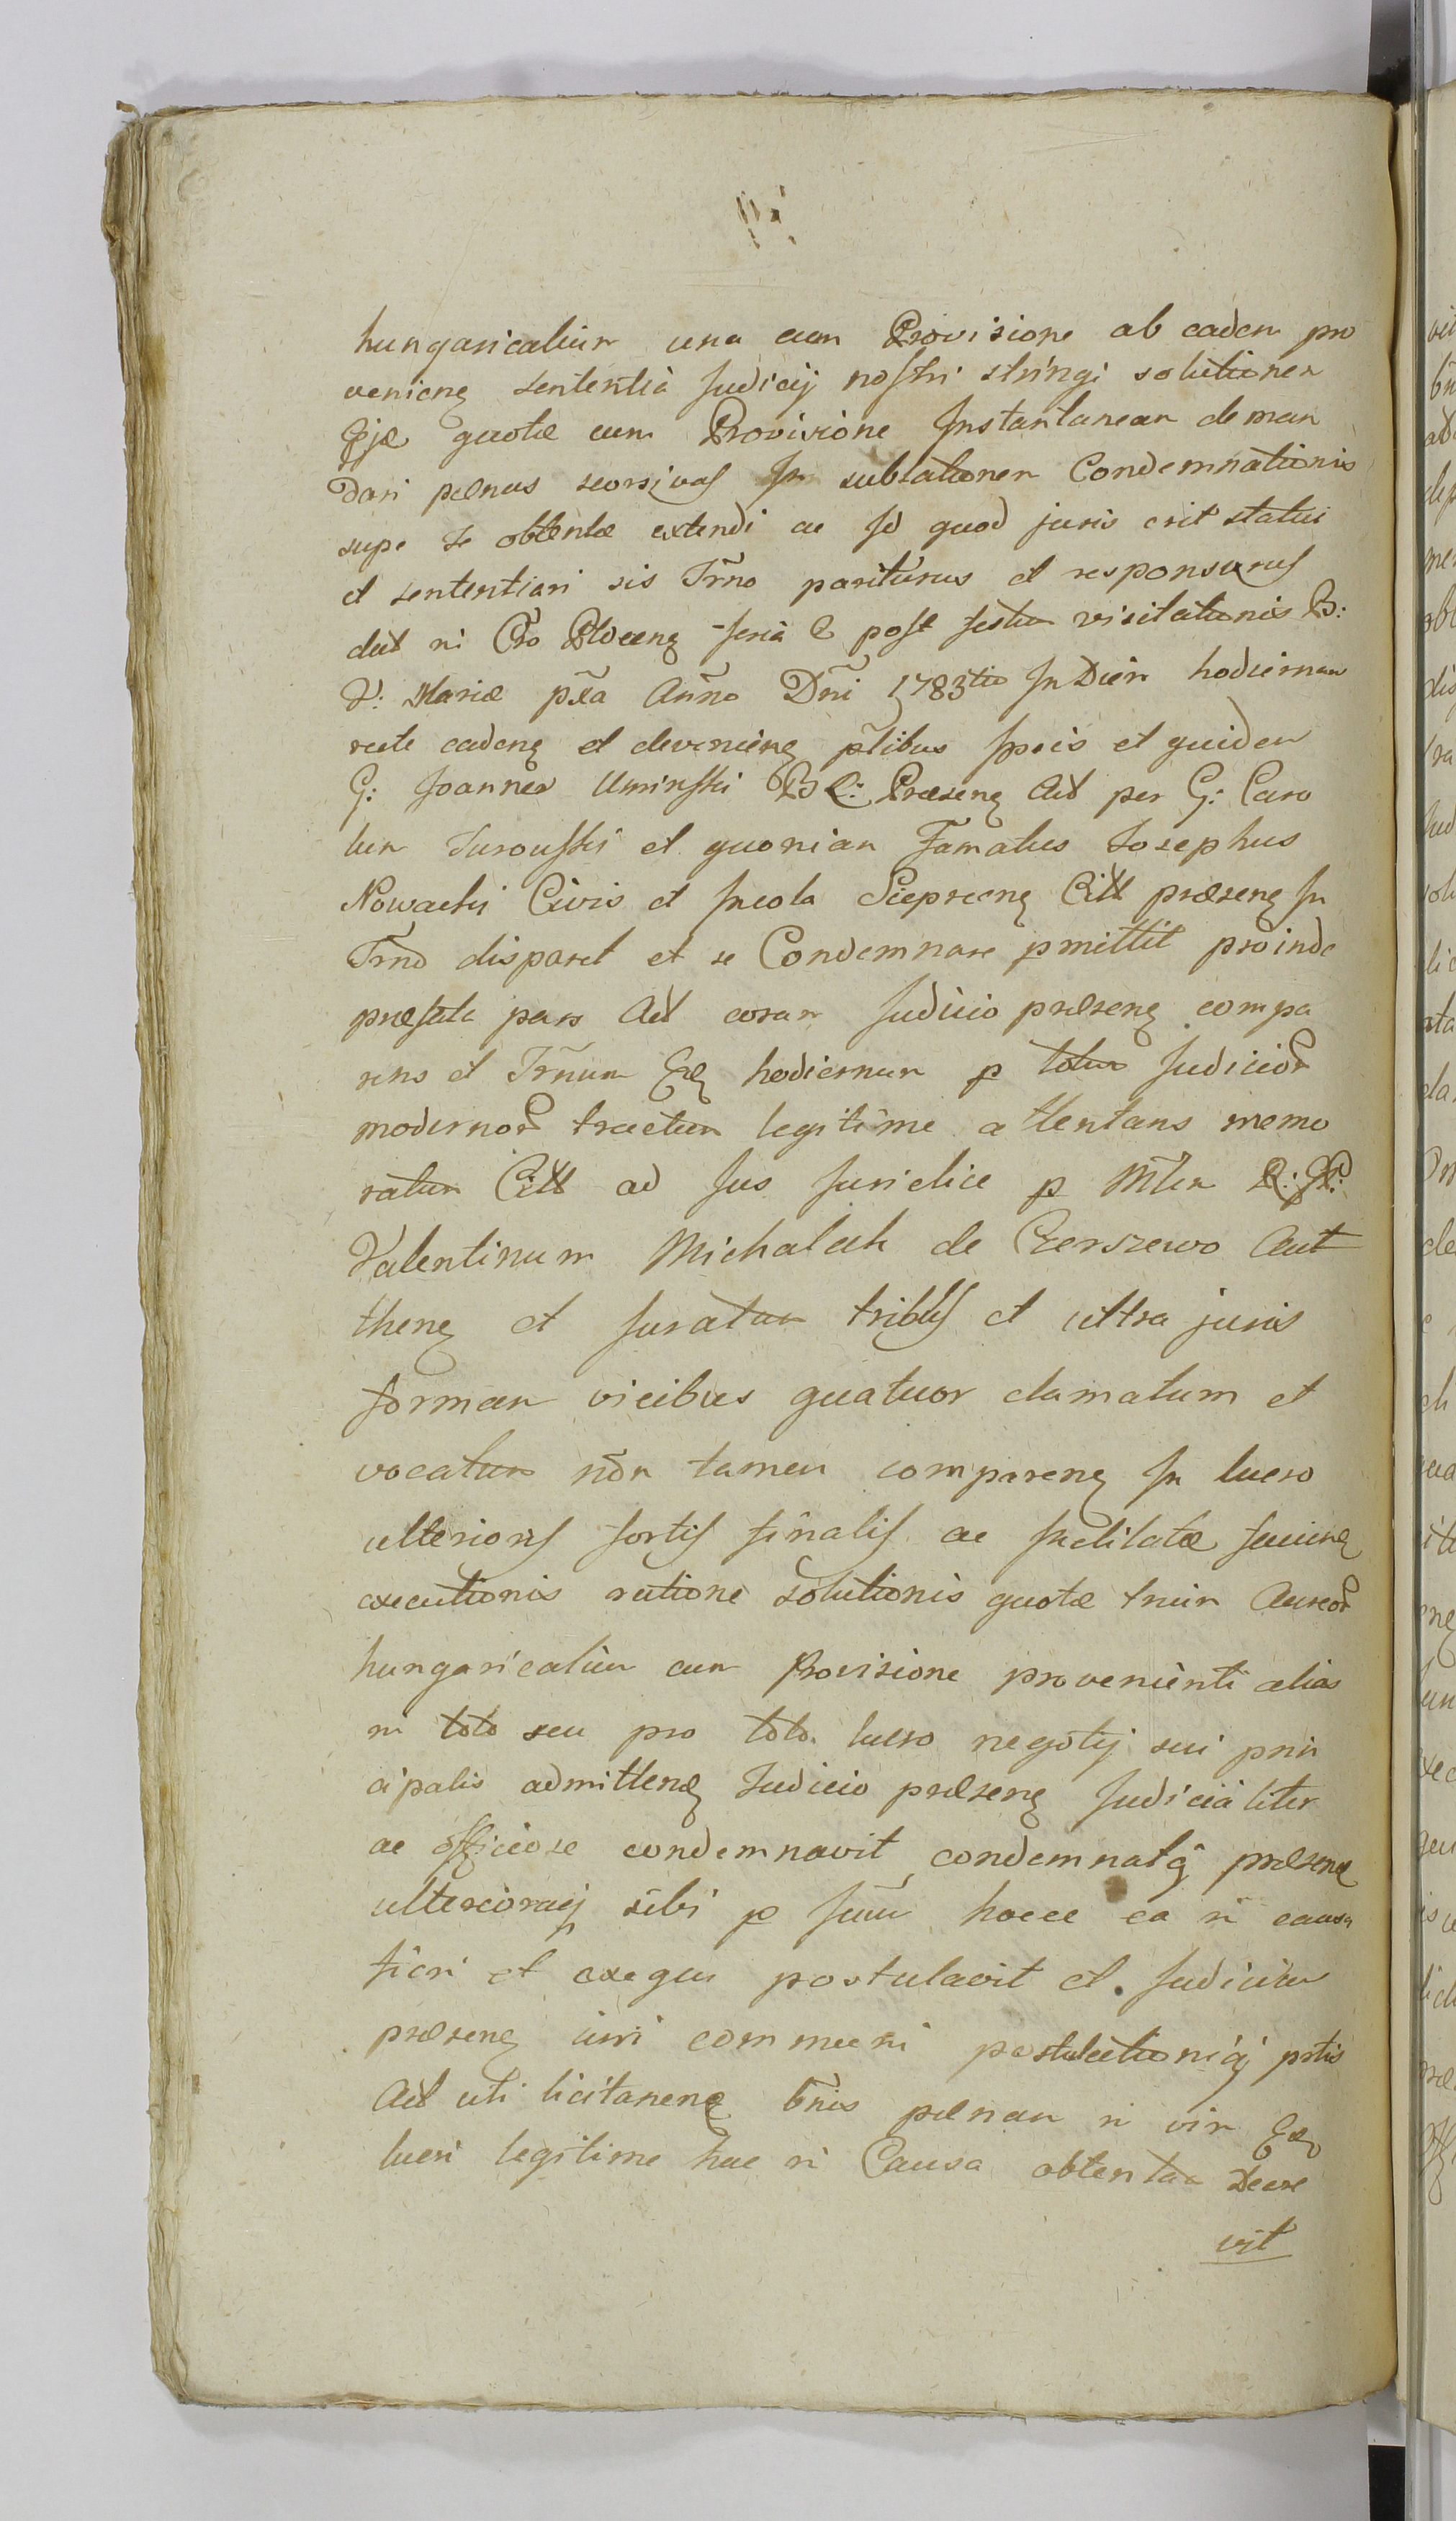 hungaricalium una cum Provisione ab eadem pro
venienꝫ sententia Judicij nostri stringi solutionem
Ejꝫ quotæ cum Provisione Instantaneam deman
dari pænas seorsivas In sublationem Condemnationis
supe se obtentæ extendi ac Id quod juris erit statui
et sententiari sis Trno pariturus et responsurus
dat ni Cro Ploceng feria 2 post festum visitationis B:
V: Mariæ pxa Anno Dni 1783tio In Diem hodiernam
recte cadenꝫ et devenienꝫ ptibus Ipsis et quidem
G: Joannes Uminski B C: Præsenꝫ Act per G: Caro
lum Turouski et quoniam Famatus Josephus
Nowacki Civis et Incola Sieprcenꝫ Citt præsenꝫ In
Trno disparet et se Condemnare pmittit proinde
præfata pars Act coram Judicio præsenꝫ compa
rens et Trnum hodiernum p totum Judicior
modernor tractum legitime attentans memo
ratum Citt ad Jus Juridice p Mtem R:
Valentinum Michalak de Czerszewo Aut
thenꝫ et Juratum tribus et ultra juris
formam vicibus quatuor clamatum et
vocatum non tamen comparenꝫ In lucro
ulterioris sortis finalis ac Inclitatæ
executionis ratione solutionis quotæ trium Aureor
hungaricalium cum Provisione provenienti alias
in toto seu pro toto lucro negotij sui prin
cipalis admittenꝫ Judicio præsenꝫ Judicialiter
ac officiose condemnavit condemnatq præsenꝫ
ulterioraq sibi p Jum hacce ea in causa
fieri et exequi postulavit et Judicium
præsenꝫ juri communi postulationiq ptis
Act uti licitanenꝫ bnis pænam in vim
lucri legitime hac in Causa obtentam Decre
vit